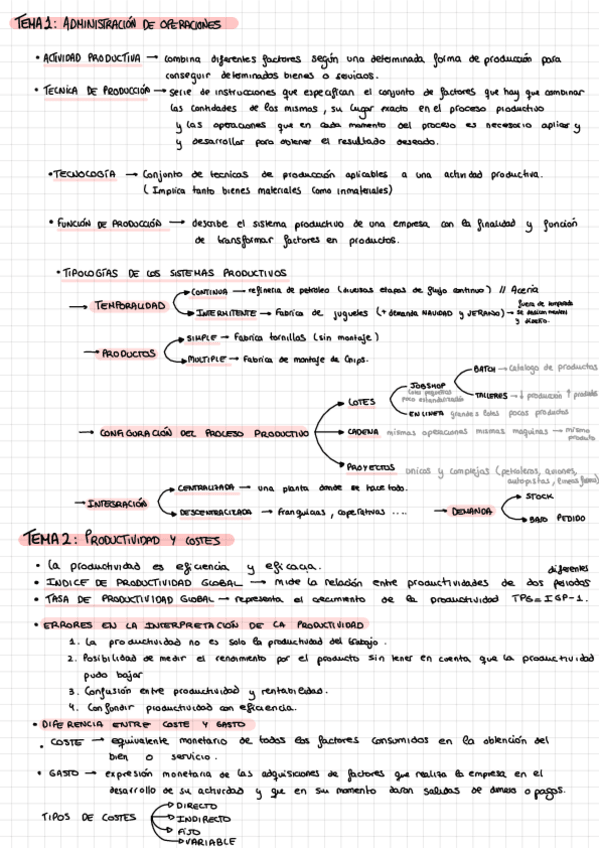 TEMA 1: ADMINISTRACIÓN DE OPERACIONES
• ACTIVIDAD PRODUCTIVA → combina diferentes factores según una determinada forma de producción para
conseguir determinados bienes o servicios.
• TECNICA DE PRODUCCIÓN → serie de instrucciones que especifican el conjunto de factores que hay que combinar
las cantidades de los mismos, su lugar exacto en el proceso productivo
y las operaciones que en cada momento del proceso es necesario aplicar y
y desarrollar para obtener el resultado deseado.
• TECNOLOGÍA → Conjunto de tecnicas de producción aplicables a una actividad productiva.
(Implica tanto bienes materiales como inmateriales)
• FUNCIÓN DE PRODUCCIÓN → describe el sistema productivo de una empresa con la finalidad y función
de transformar factores en productos.
• TIPOLOGÍAS DE LOS SISTEMAS PRODUCTIVOS
→ TEMPORALIDAD
CONTINUA → refineria de petroleo (diversas etapas de flujo continuo) // Aceria
INTERMITENTE → Fabrica de juguetes (+ demanda NAVIDAD y VERANO) →
fuera de temporada
se
y diseño.
→ PRODUCTOS
SIMPLE → Fabrica tornillas (sin montaje)
MULTIPLE → Fabrica de montaje de Chips.
→ CONFIGURACIÓN DEL PROCESO PRODUCTIVO
LOTES
JOBSHOP
lotes pequeños
poca estandarización
BATCH → Catalogo de productos
TALLERES → ↓ producción ↑ productos
EN LINEA grandes lotes pocos productos
CADENA mismas operaciones mismas maquinas → mismo
producto
PROYECTOS unicos y complejas (petroleros, aviones,
autopistas, lineas ferrea)
→ INTEGRACIÓN
CENTRALIZADA → una planta donde se hace todo.
DESCENTRALIZADA → franquicias, coperativas ....
→ DEMANDA
STOCK
BAJO PEDIDO
TEMA 2: PRODUCTIVIDAD Y COSTES
• La productividad es eficiencia y eficacia.
• INDICE DE PRODUCTIVIDAD GLOBAL → mide la relación entre productividades de dos periodos
diferentes
• TASA DE PRODUCTIVIDAD GLOBAL → representa el crecimiento de la productividad TPG = IGP-1.
• ERRORES EN LA INTERPRETACIÓN DE LA PRODUCTIVIDAD
1. La productividad no es solo la productividad del trabajo.
2. Posibilidad de medir el rendimiento por el producto sin tener en cuenta que la productividad
pudo bajar
3. Confusión entre productividad y rentabilidad.
4. Confundir productividad con eficiencia.
• DIFERENCIA ENTRE COSTE Y GASTO
• COSTE → equivalente monetario de todos los factores consumidos en la obtención del
bien o servicio.
• GASTO → expresión monetaria de las adquisiciones de factores que realiza la empresa en el
desarrollo de su actividad y que en su momento daran salidas de dinero o pagos.
TIPOS DE COSTES
DIRECTO
INDIRECTO
FIJO
VARIABLE